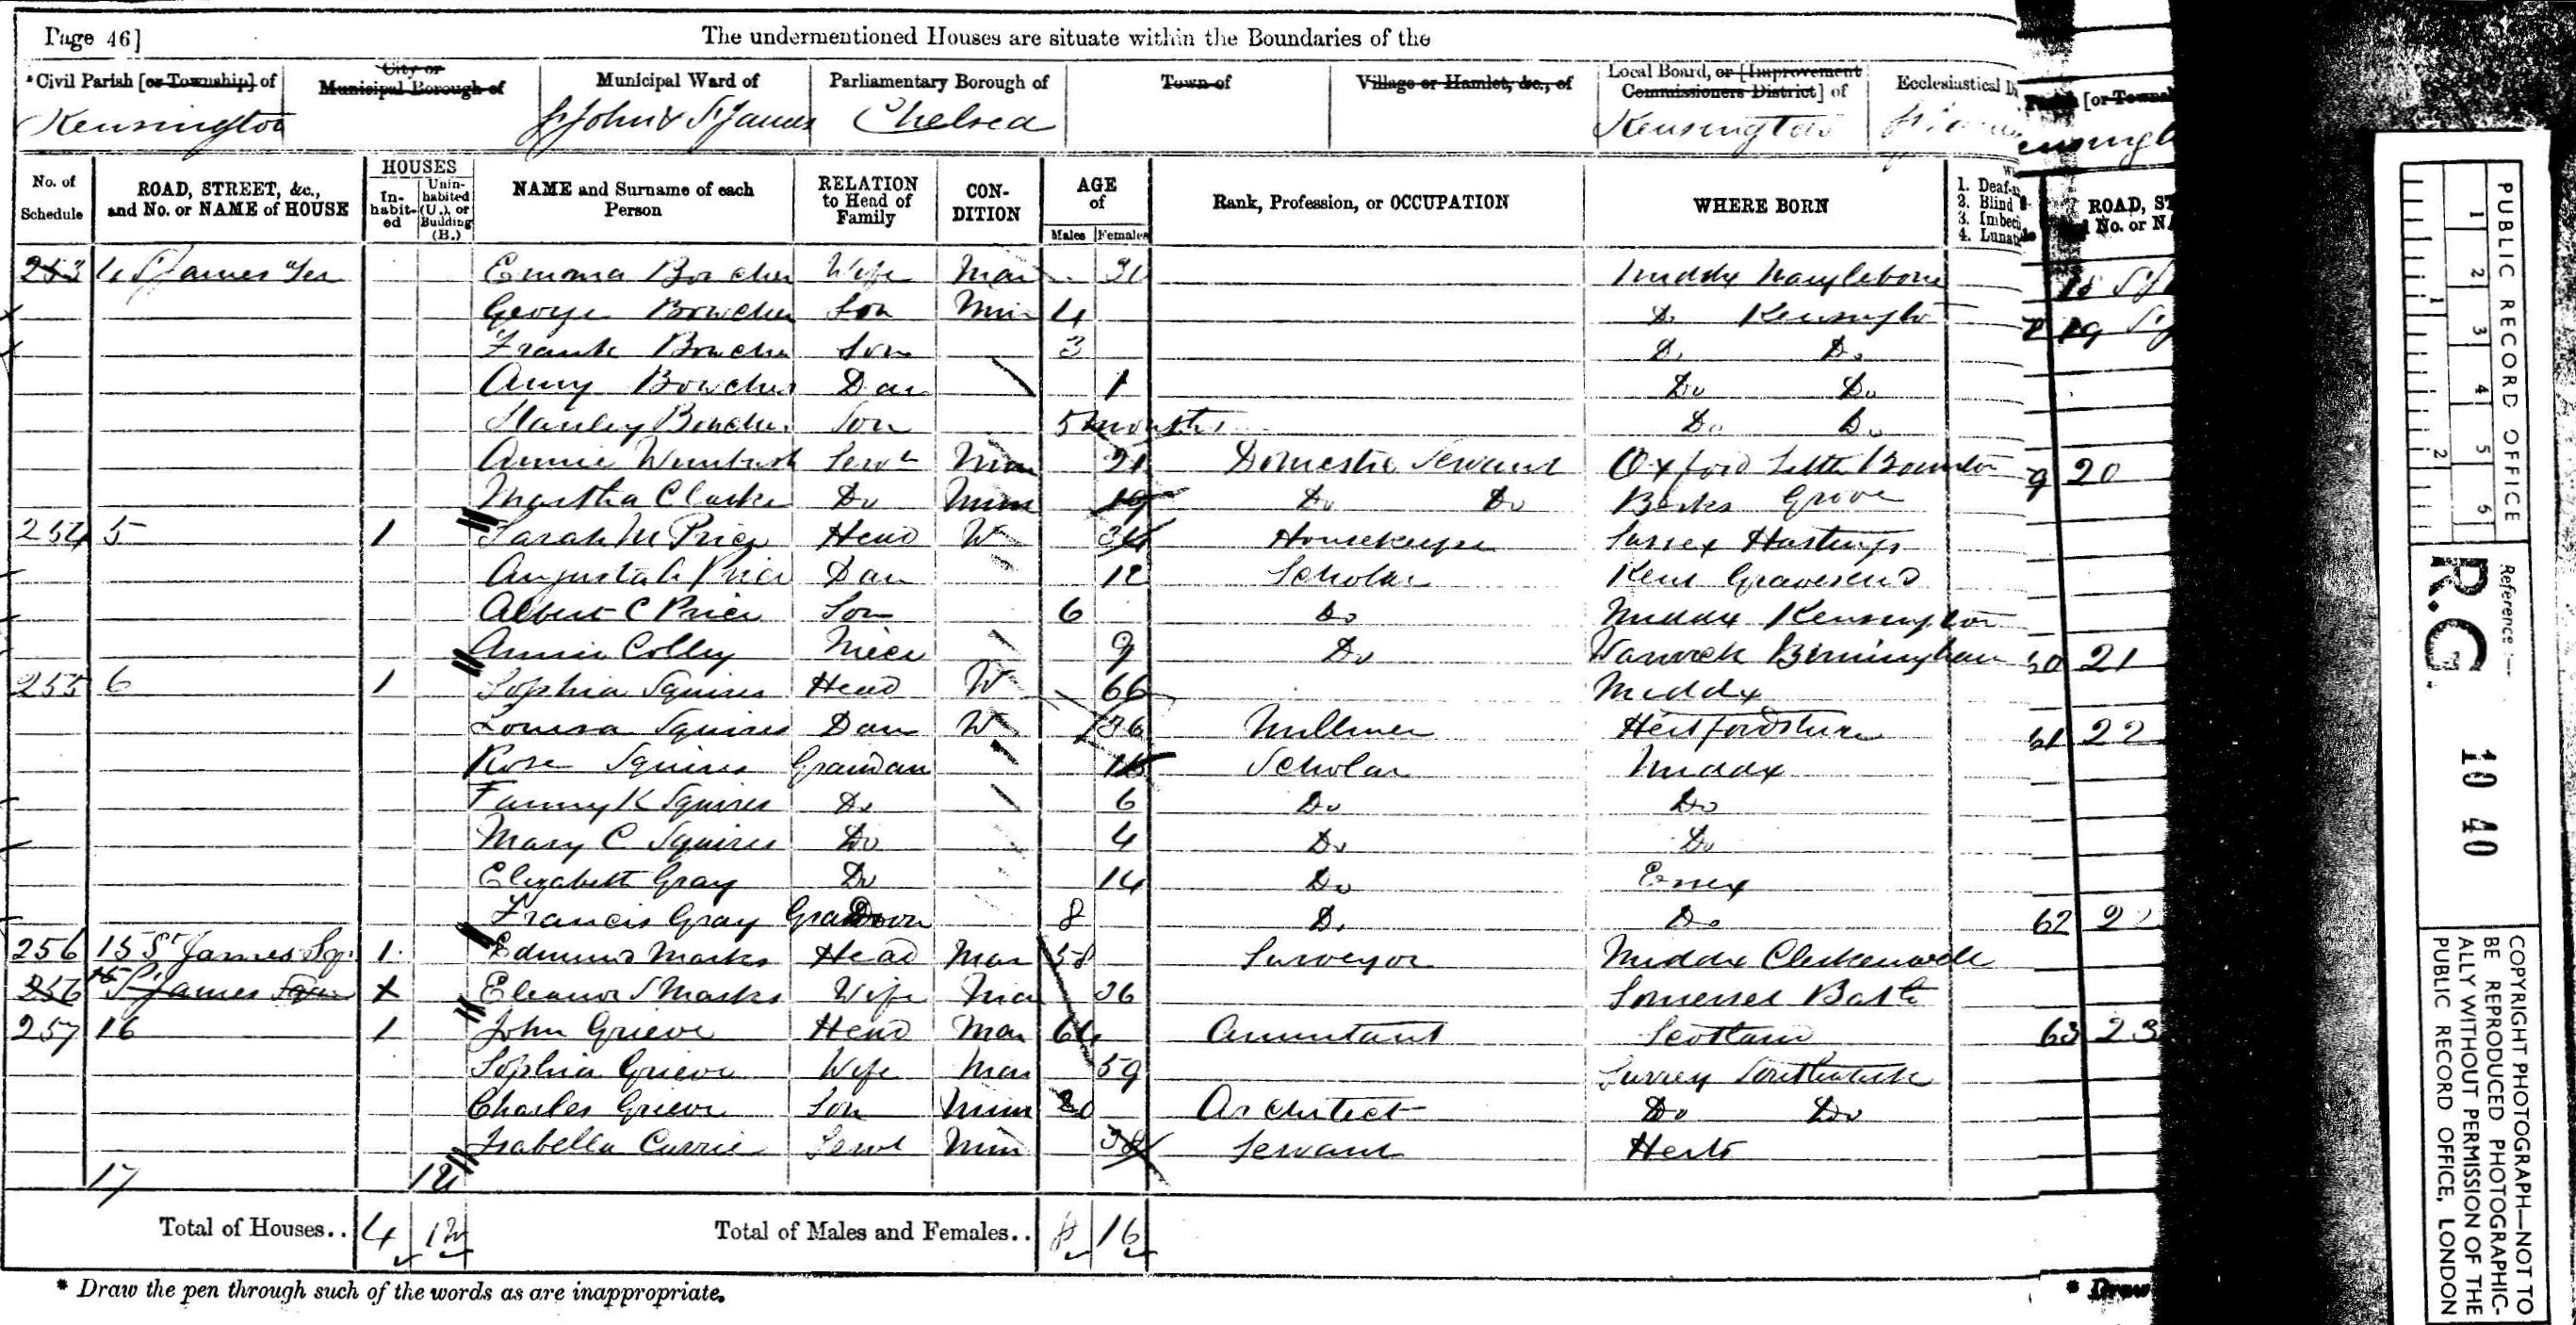 Page 46]
The undermentioned Houses are situate within the Boundaries of the
*Civil Parish [or Township] of
City or Municipal Borough of
Municipal Ward of
Parliamentary Borough of
Town of
Village or Hamlet, &c., of
Local Board, or [Improvement Commissioners District] of
Ecclesiastical Di
[or Towns
Kensington
St John & St James
Chelsea
Kensington
No. of Schedule
ROAD, STREET, &c., and No. or NAME of HOUSE
HOUSES
In-habit-ed
Unin-habited (U.), or Building (B.)
NAME and Surname of each Person
RELATION to Head of Family
CON-DITION
AGE of
Males
Females
Rank, Profession, or OCCUPATION
WHERE BORN
1. Deaf-
2. Blind
3. Imbeci
4. Lunat
ROAD, ST
No. or NA
253 4 St James Ter Emma Bowcher Wife Mar 31 Middx Marylebone
George Bowcher Son 4 Do Kensington
Frank Bowcher Son 3 Do Do
Amy Bowcher Dau 1 Do Do
Stanley Bowcher Son 5 months Do Do
Annie Servt 21 Domestic Servant Oxford
Martha Clarke Do 19 Do Do Berks Grove
254 5 1 Sarah M Price Head W 34 Housekeeper Sussex Hastings
Augusta Price Dau 12 Scholar Kent Gravesend
Albert C Price Son 6 Do Middx Kensington
Annie Colley Niece 9 Do Warwick Birmingham
255 6 1 Sophia Squires Head W 66 Middx
Louisa Squires Dau W 36 Milliner Hertfordshire
Rose Squires Grandau Scholar Middx
Fanny K Squires Do 6 Do Do
Mary C Squires Do 4 Do Do
Elizabeth Gray Do 14 Do Essex
Francis Gray Grandson 8 Do Do
256 15 St James Sq. 1 Edmund Marks Head Mar 58 Surveyor Middx Clerkenwell
256 15 St James Square Eleanor S Marks Wife Mar 36 Somerset Bath
257 16 1 John Grieve Head Mar 64 Accountant Scotland
Sophia Grieve Wife Mar 59 Surrey Southwark
Charles Grieve Son 20 Architect Do Do
Isabella Currie Servt 38 Servant Herts
17 1U
Total of Houses.. 4
Total of Males and Females.. 8 16
* Draw the pen through such of the words as are inappropriate.
20
21
22
62
63 23
* Draw
PUBLIC RECORD OFFICE
1 2 3 4 5 6
1 2
Reference :—
R.G. 10 40
COPYRIGHT PHOTOGRAPH—NOT TO
BE REPRODUCED PHOTOGRAPHIC-
ALLY WITHOUT PERMISSION OF THE
PUBLIC RECORD OFFICE, LONDON